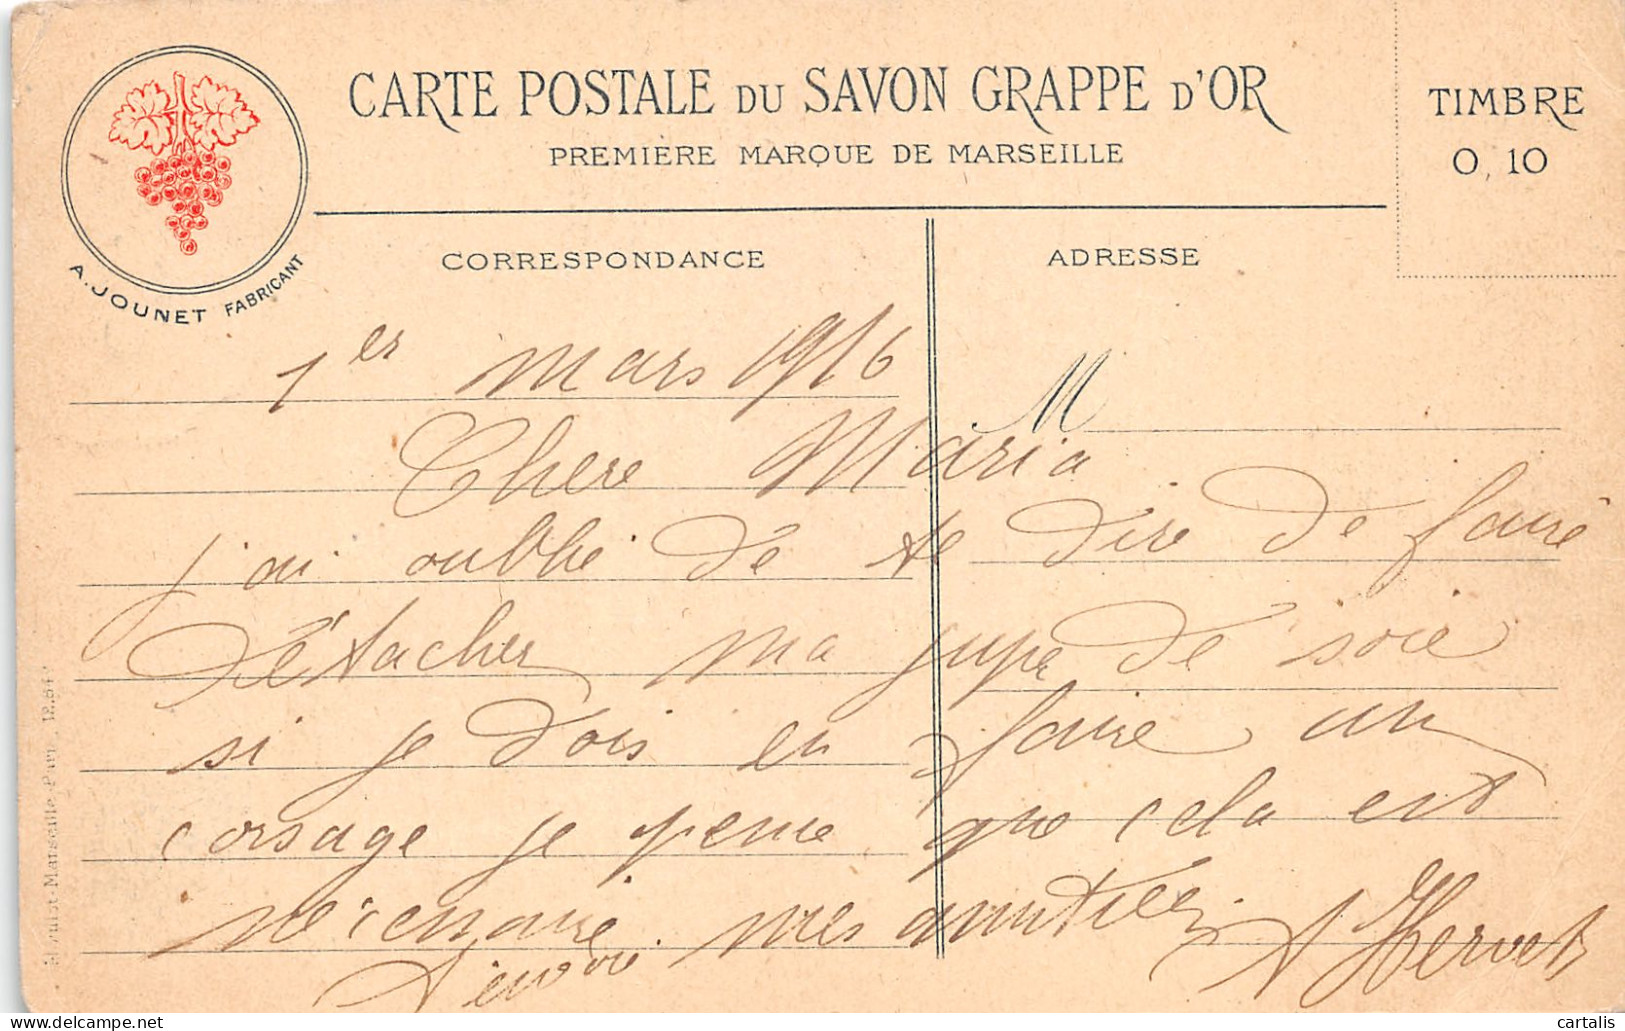 CARTE POSTALE DU SAVON GRAPPE D'OR
PREMIERE MARQUE DE MARSEILLE
TIMBRE
0,10
A. JOUNET FABRICANT
CORRESPONDANCE
ADRESSE
M
1er mars 1916
Chere Maria
j'ai oublié de te dire de faire
détacher ma jupe de soie
si je dois en faire un
corsage je pense que cela est
nécessaire mes amitiés
t'envoie A Hervet
Marseille-Paris
cartalis
delcampe.net